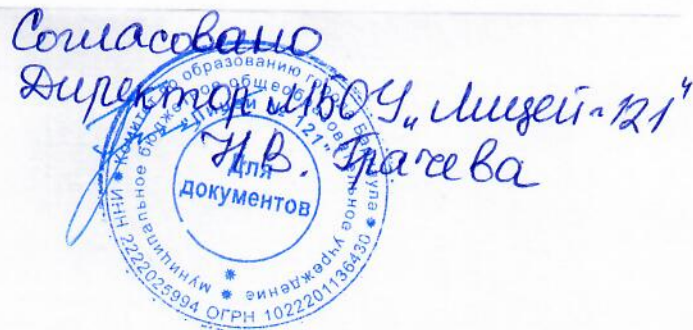 Согласовано
Директор МБОУ „Лицей-121"
Н.В. Грачева
Комитет по образованию города Барнаула
муниципальное бюджетное общеобразовательное учреждение
"Лицей № 121"
Для
документов
ИНН 2222025994 ОГРН 1022201136430